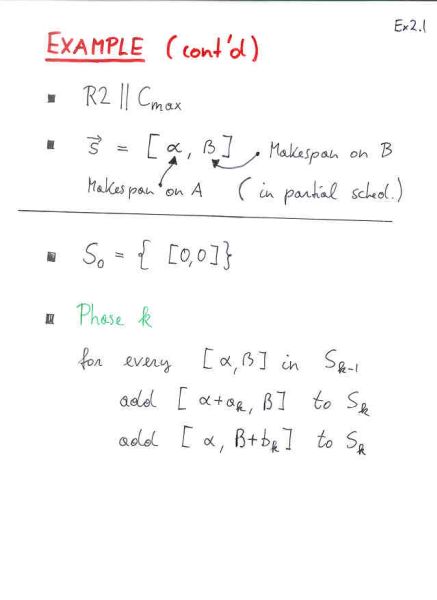 Ex2.1
EXAMPLE (cont'd)
R2 || Cmax
s⃗ = [α, β] Makespan on B
Makespan on A (in partial sched.)
S₀ = { [0,0]}
Phase k
for every [α, β] in Sₖ₋₁
add [α+aₖ, β] to Sₖ
add [α, β+bₖ] to Sₖ